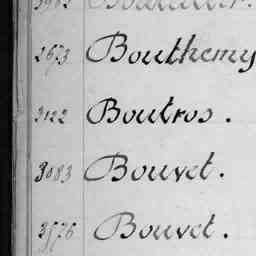 2673 Bouthemy
3122 Boutros.
3083 Bouvet.
3576 Bouvet.